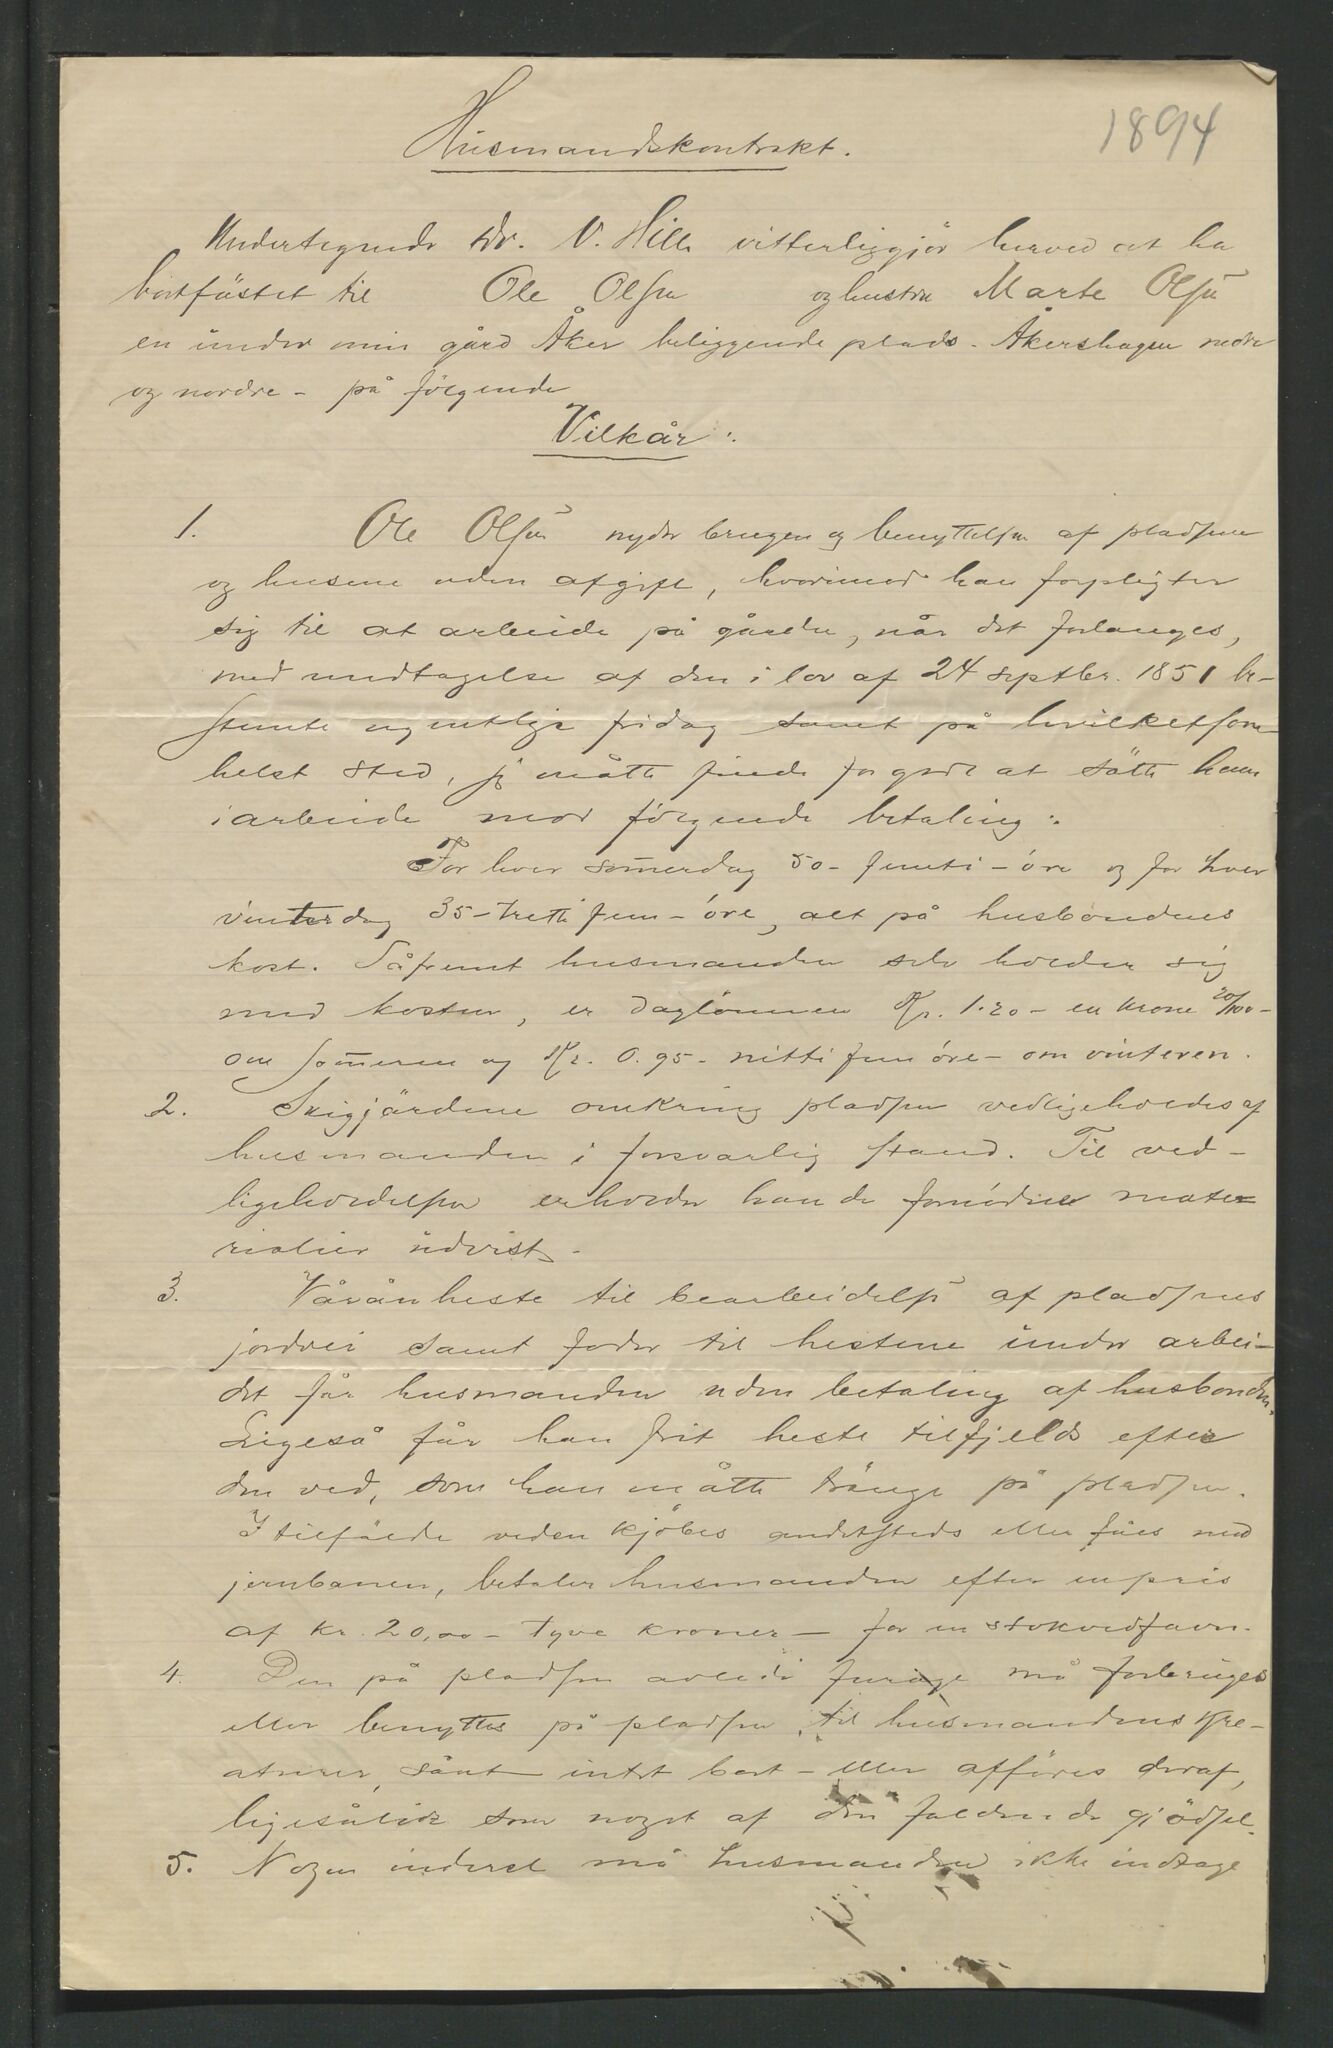 1894
Husmandskontrakt.
Undertegnede Dr. V. Hille vitterliggjör herved at ha
bortfästet til Ole Olsen og hustru Marte Olsen
en under min gård Åker beliggende plads - Åkershagen nedre
og nordre - på fölgende
Vilkår:
1. Ole Olsen nyder brugen og benyttelsen af pladsene
og husene uden afgift, hvorimod han forpligter
sig til at arbeide på gården, når det forlanges,
med undtagelse af den i lov af 24 septbr. 1851 be-
stemte ugentlige fridag samt på hvilketsom-
helst sted, jeg måtte finde for godt at sätte ham
i arbeide mod fölgende betaling:
For hver som̄erdag 50 - femti - öre og for hver
vinterdag 35 - tretti fem - öre, alt på husbondens
kost. Såfremt husmanden selv holder sig
med kosten, er daglönnen Kr. 1.20 - en krone 20/100 -
om som̄eren og Kr. 0.95 - nitti fem öre - om vinteren.
2. Skigjärdene omkring pladsen vedligeholdes af
husmanden i forsvarlig stand. Til ved-
ligeholdelsen erholder han de fornödne mate-
rialier udvist.
3. Vårånheste til bearbeidelse af pladsens
jordvei samt foder til hestene under arbei-
det får husmanden uden betaling af husbonden.
Ligeså får han frit heste tilfjelds efter
den ved, som han måtte tränge på pladsen.
I tilfälde veden kjöbes andetsteds eller fåes med
jernbanen, betaler husmanden efter en pris
af kr. 20,00 - tyve kroner - for en stokvedfavn.
4. Den på pladsen avlede furage må forbruges
eller benyttes på pladsen til husmandens kre-
aturer, sånt intet bort - eller afföres deraf,
ligesålidt som noget af den faldende gjödsel.
5. Nogen inderst må husmanden ikke indtage